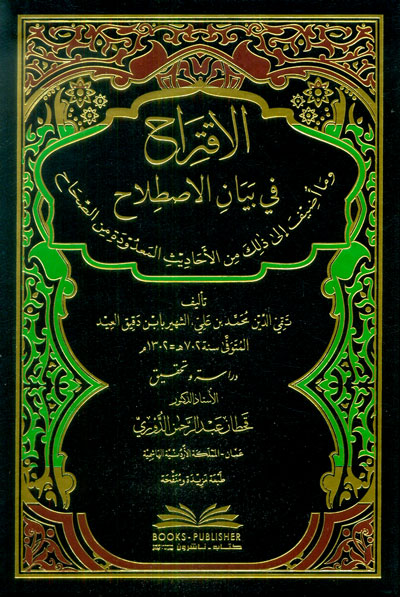 الاقتراح
في بيان الاصطلاح
وما أضيف إلى ذلك من الأحاديث المعدودة من الصحاح
تأليف
تقي الدين محمد بن علي الشهير بابن دقيق العيد
المتوفى سنة ٧٠٢هـ=١٣٠٢م
دراسة وتحقيق
الأستاذ الدكتور
قحطان عبد الرحمن الدوري
عمان - المملكة الأردنية الهاشمية
طبعة مزيدة ومنقحة
BOOKS - PUBLISHER
كتاب - ناشرون